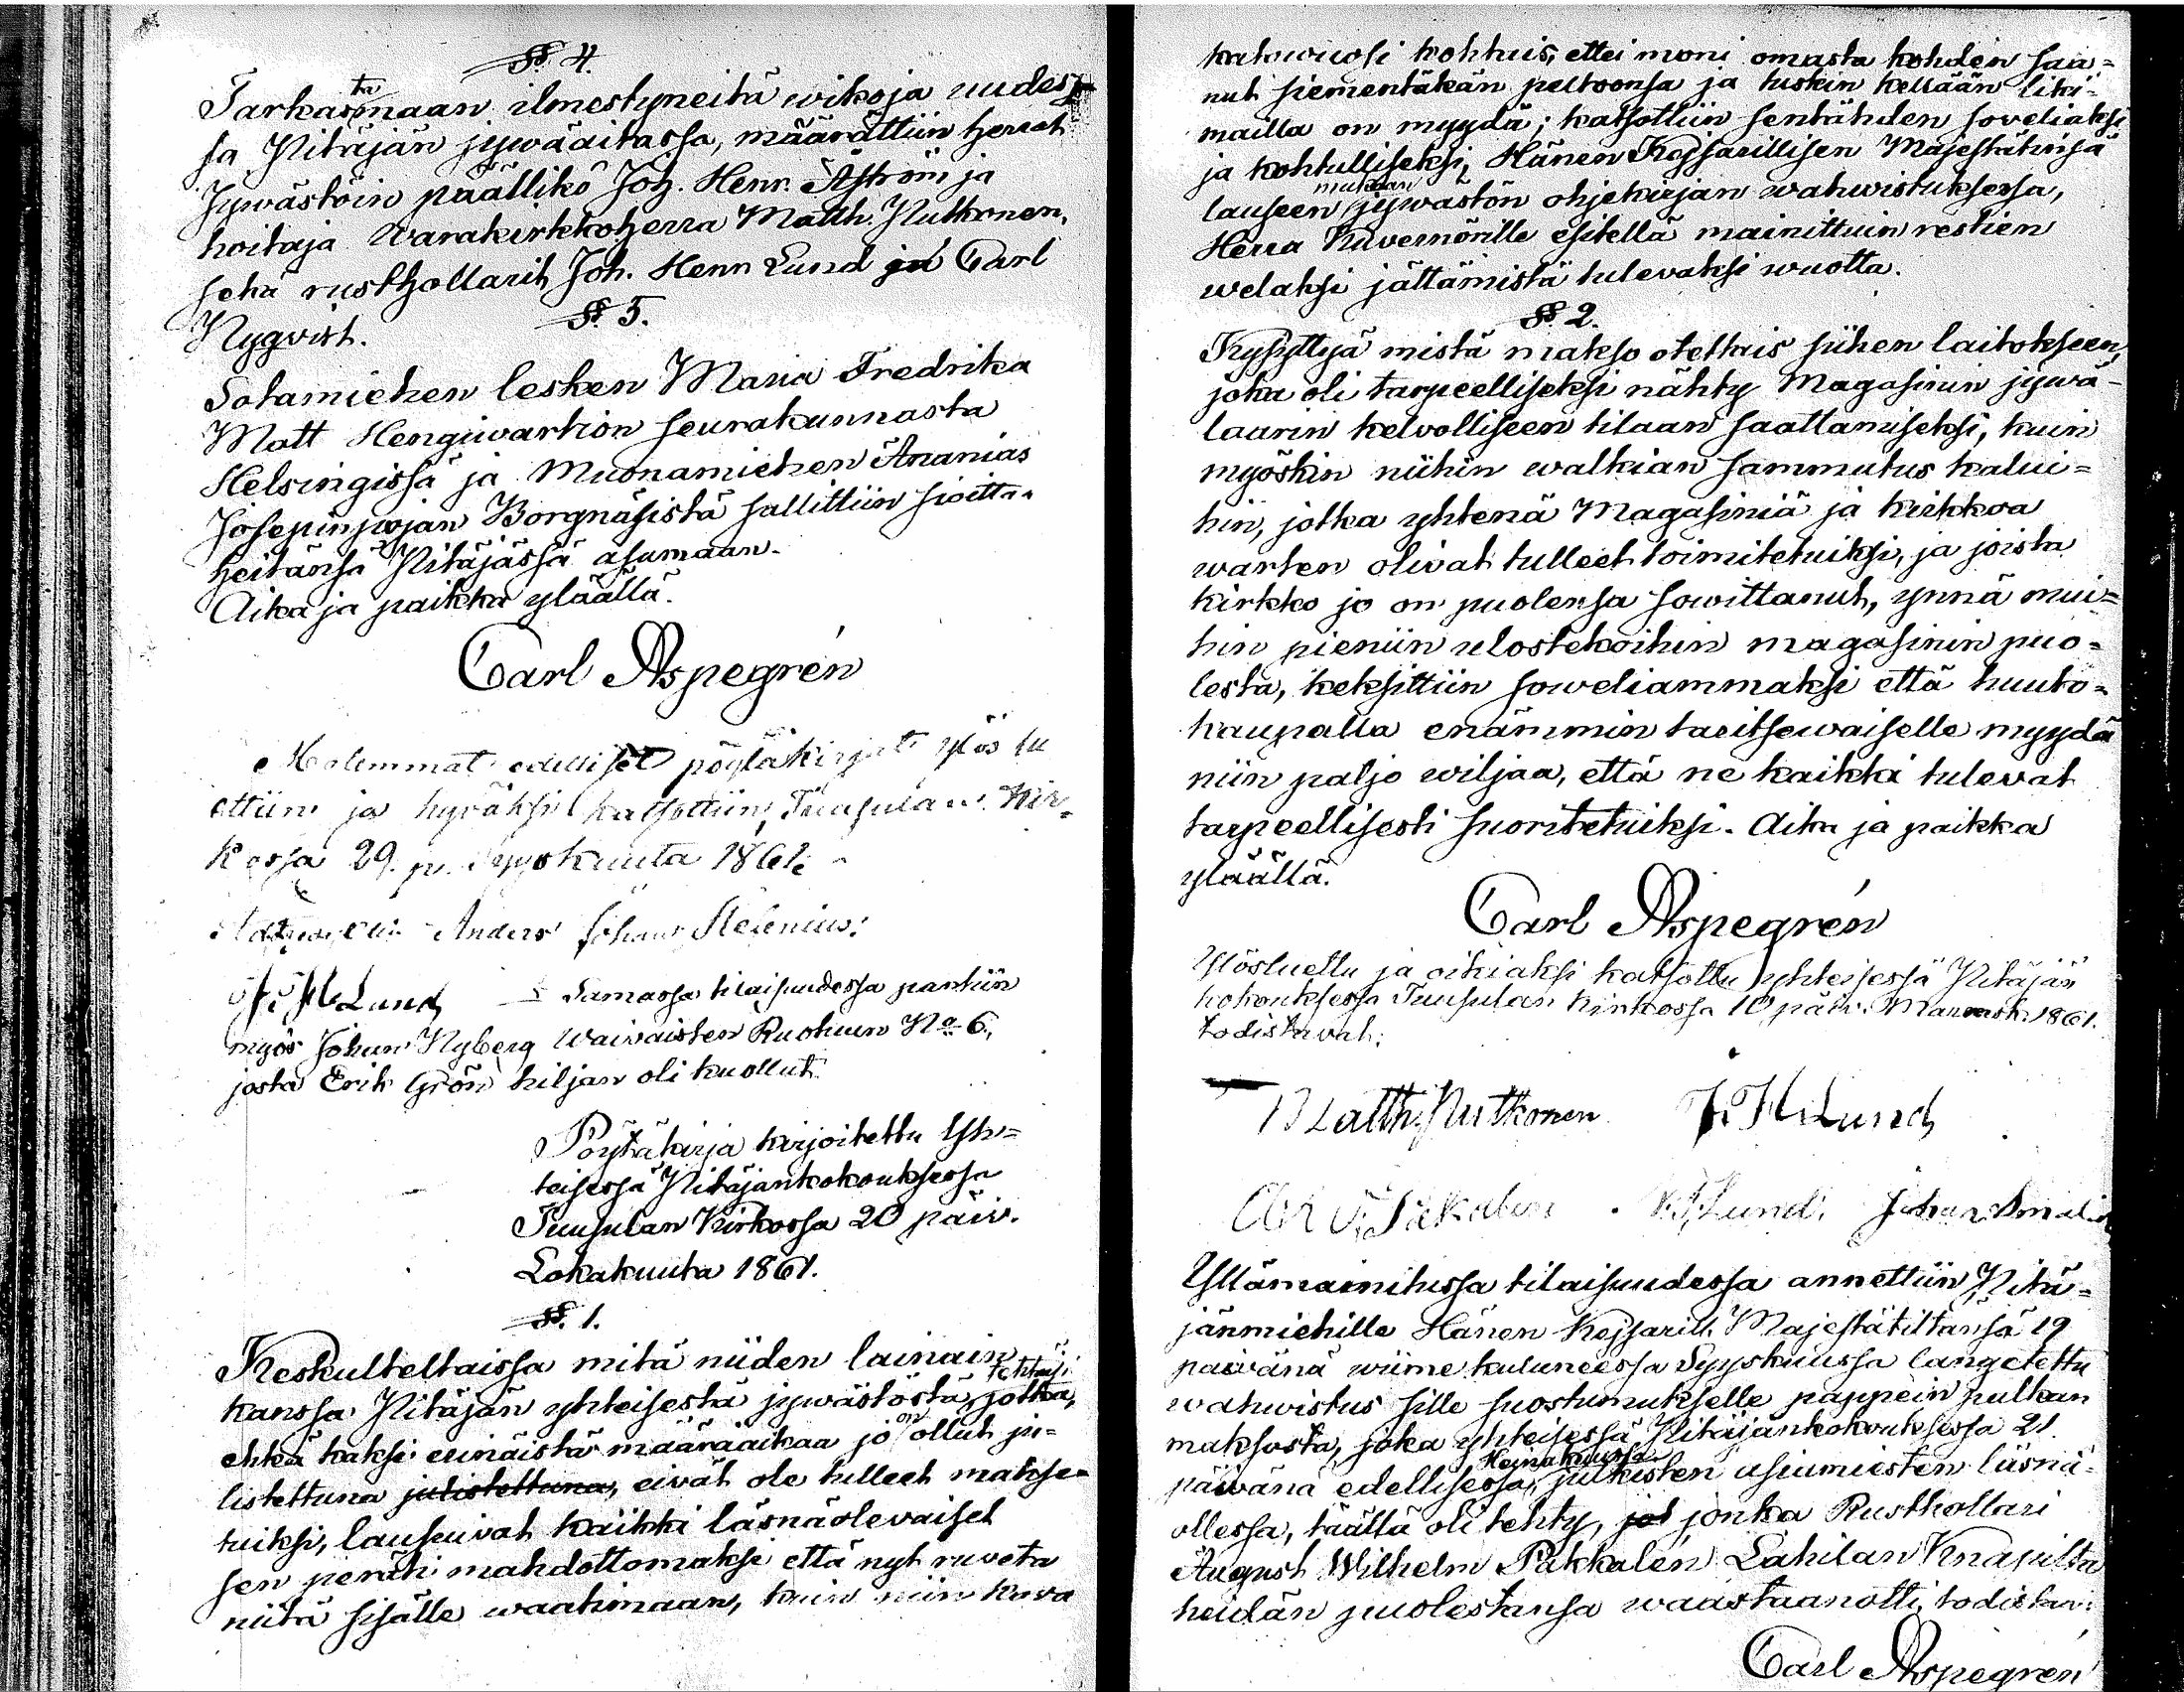 § 4.
Tarkastamaan ilmestyneitä wikoja uudes-
sa Pitäjän jywäaitassa, määrättiin Herrat
Jywästöin päällikö Joh. Henr. Åström ja
hoitaja Warakirkkoherra Matth. Putkonen,
sekä rusthollarit Joh. Henr Lund ja Carl
Nyqvist.
§. 5.
Sotamiehen lesken Maria Fredrika
Matt Hengiwartion seurakunnasta
Helsingissä ja Muonamiehen Ananias
Josepinpojan Borgnäsistä sallittiin sioitta-
heitänsä Pitäjässä asumaan.
Aika ja paikka yläällä.
Carl Aspegrén
Molemmat edelliset pöytäkirjat ylös lu
ettiin ja hyväksi katsottiin, Tuusulan Kir-
kossa 29. p. Syyskuuta 1861.
Anders Johan Helenius.
J. H. Lund
Samassa tilaisuudessa pantiin
myös Johan Nyberg Waivaisten Ruotuun No 6,
josta Erik Grön hiljan oli kuollut.
Pöytäkirja kirjoitettu Yh-
teisessä Pitäjänkokouksessa
Tuusulan Kirkossa 20 päiv.
Lokakuuta 1861.
§. 1.
Keskulteltaissa mitä niiden lainain
kanssa Pitäjän yhteisestä jywästöstä, tehtäisi jotka,
ehkä kaksi erinäistä määräaikaa jo on ollut ju-
listettuna julistettuna, eivät ole tulleet makse-
tuiksi, lausuivat kaikki läsnäolevaiset
sen peräti mahdottomaksi että nyt ruveta
niitä sisälle waatimaan, kuin niin kova
katowuosi kohtais, ettei moni omasta kohden saa-
nut siementäkän peltoonsa ja tuskin kellään liki-
mailla on myydä; katsottiin sentähden soveliaksi
ja kohtulliseksi, Hänen Kejsarillisen Majestätinsä
lauseen mukaan jywästön ohjekirjan wahwistuksessa,
Herra Kuvernörille esitellä mainittuin restien
welaksi jättämistä tulevaksi wuotta.
§. 2.
Kysyttyä mistä makso otettais siihen laitokseen,
joka oli tarpeelliseksi nähty Magasinin jywä-
laarin kelvolliseen tilaan saattamiseksi, kuin
myöskin niihin walkian sammutus kalui-
hin, jotka yhtenä Magasiniä ja kirkkoa
warten olivat tulleet toimitetuiksi, ja joista
kirkko jo on puolensa sowittanut, ynnä mui-
hin pieniin ulostekoihin magasinin puo-
lesta, keksittiin soweliammaksi että huuto-
kaupalla enämmin taritsewaiselle myydä
niin paljo wiljaa, että ne kaikki tulevat
tarpeellisesti suoritetuiksi. Aika ja paikka
yläällä.
Carl Aspegrén
Ylösluettu ja oikiaksi katsottu yhteisessä Pitäjän
kokouksessa Tuusulan Kirkossa 10 päiv. Marrask. 1861.
todistavat:
Matth. Putkonen J. H. Lund
Lund. Johan
Yllämainitussa tilaisuudessa annettiin Pitä-
jänmiehille Hänen Kejsarill. Majestätiltänsä 19
päivänä wiime kuluneessa Syyskuussa langetettu
wahwistus sille suostumukselle pappein palkan
maksosta, joka yhteisessä Pitäjänkokouksessa 21
päivänä edellisessä Heinäkuussa, julkisten asiamiesten läsnä-
ollessa, täällä oli tehty, jot jonka Rusthollari
August Wilhelm Pakkalén Lahilan Knapilta
heidän puolestansa waastaanotti, todistan:
Carl Aspegrén